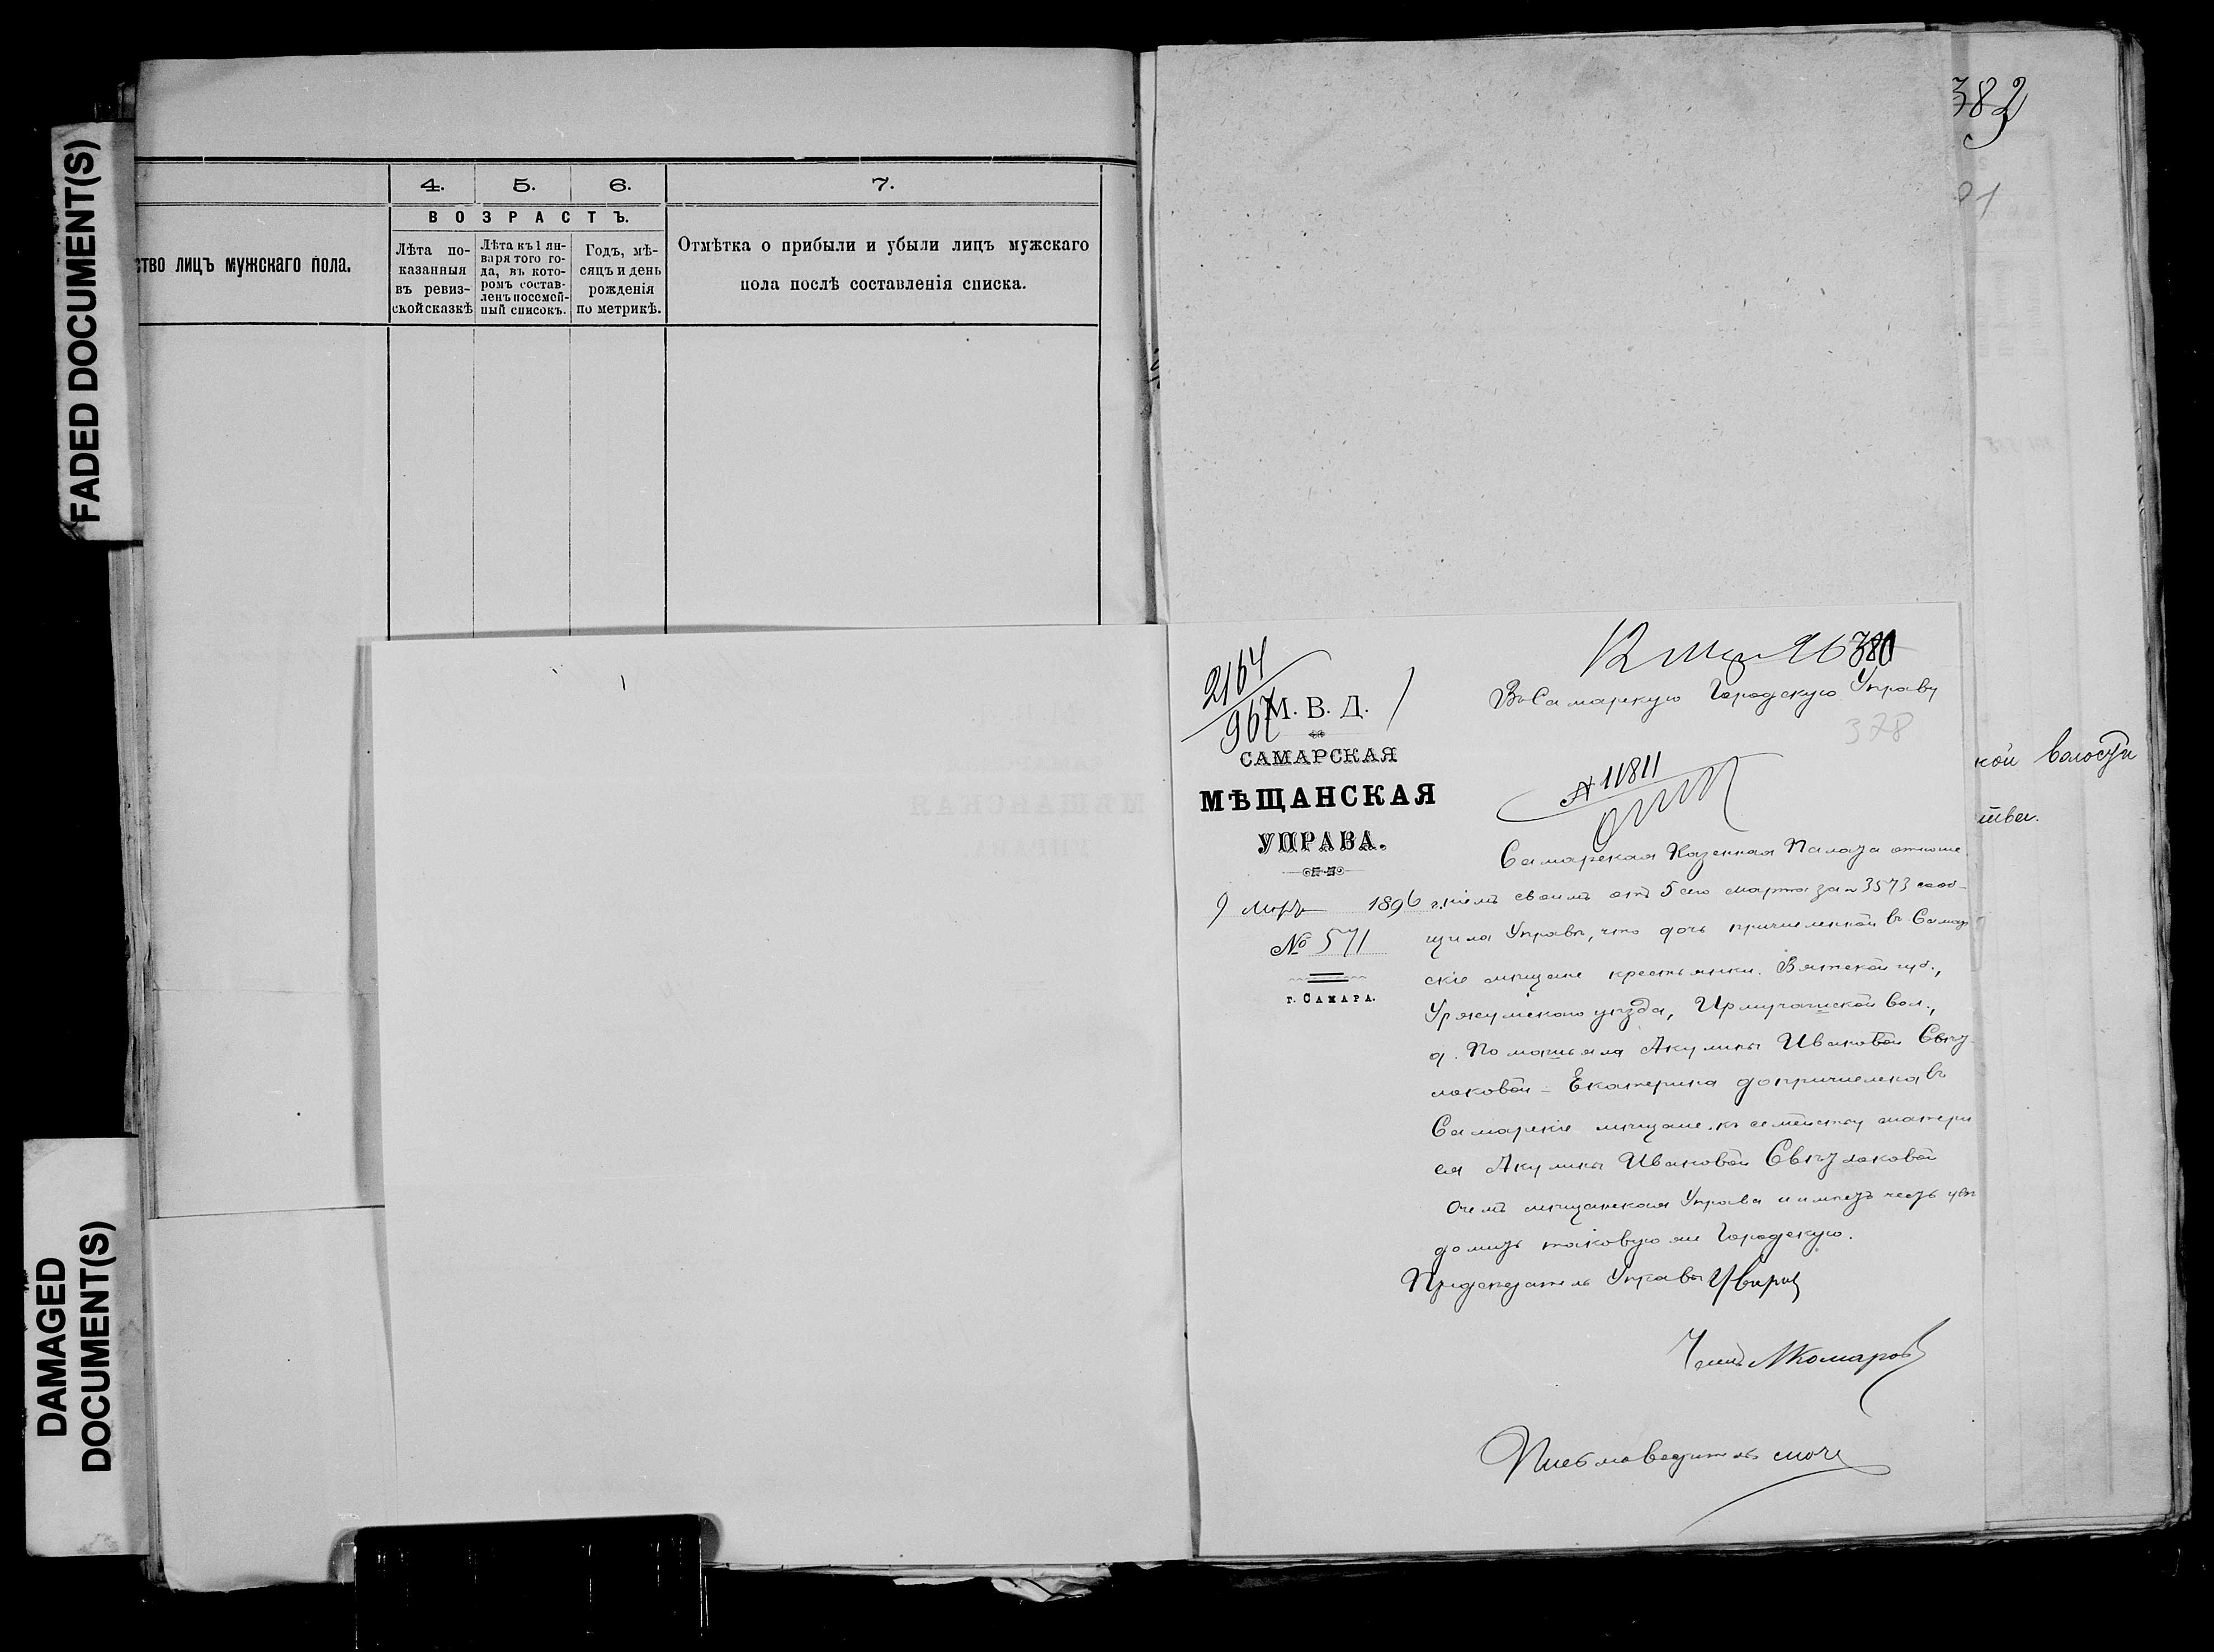 FADED DOCUMENT(S)
DAMAGED
DOCUMENT(S)
4.
5.
6.
7.
ВОЗРАСТЪ.
ство лицъ мужскаго пола.
Лѣта по-
казанныя
въ ревиз-
ской сказкѣ
Лѣта къ 1 ян-
варя того го-
да, въ кото-
ромъ состав-
ленъ посемей-
ный списокъ.
Годъ, мѣ-
сяцъ и день
рожденія
по метрикѣ.
Отмѣтка о прибыли и убыли лицъ мужскаго
пола послѣ составленія списка.
382
91
кой волости
ства.
2164
967
М. В. Д.
САМАРСКАЯ
МѢЩАНСКАЯ
УПРАВА.
9 Мар 1896 г.
№ 571
г. САМАРА.
12 Мар 96 380
Въ Самарскую Городскую Управу
378
11811
Самарская Казенная Палата отноше
ніемъ своимъ отъ 5 сего Марта за № 3573 сооб-
щила Управѣ, что дочь причисленной въ Самар
скіе мѣщане крестьянки Вятской губ.,
Уржумскаго уѣзда, Ирмучашской вол.,
д. Помашъяла Акулины Ивановой Свѣ
лаковой - Екатерина допричислена въ
Самарскіе мѣщане къ семейству матери
ея Акулины Ивановой
О чемъ мѣщанская Управа и имѣетъ честь увѣ
домить таковую же Городскую.
Предсѣдатель Управы
Членъ Комаровъ
Письмоводитель